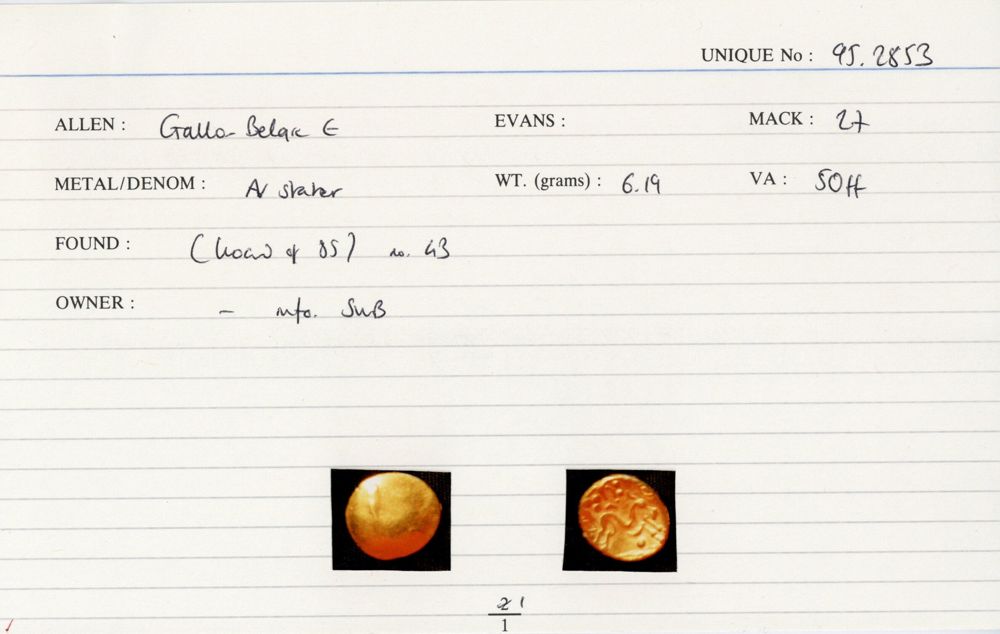 UNIQUE No : 95.2853
ALLEN : Gallo-Belgic E EVANS : MACK : 27
METAL/DENOM : AV stater WT. (grams) : 6.19 VA : 50ff
FOUND : (hoard of 85) no. 43
OWNER : - info. SWB
1
1